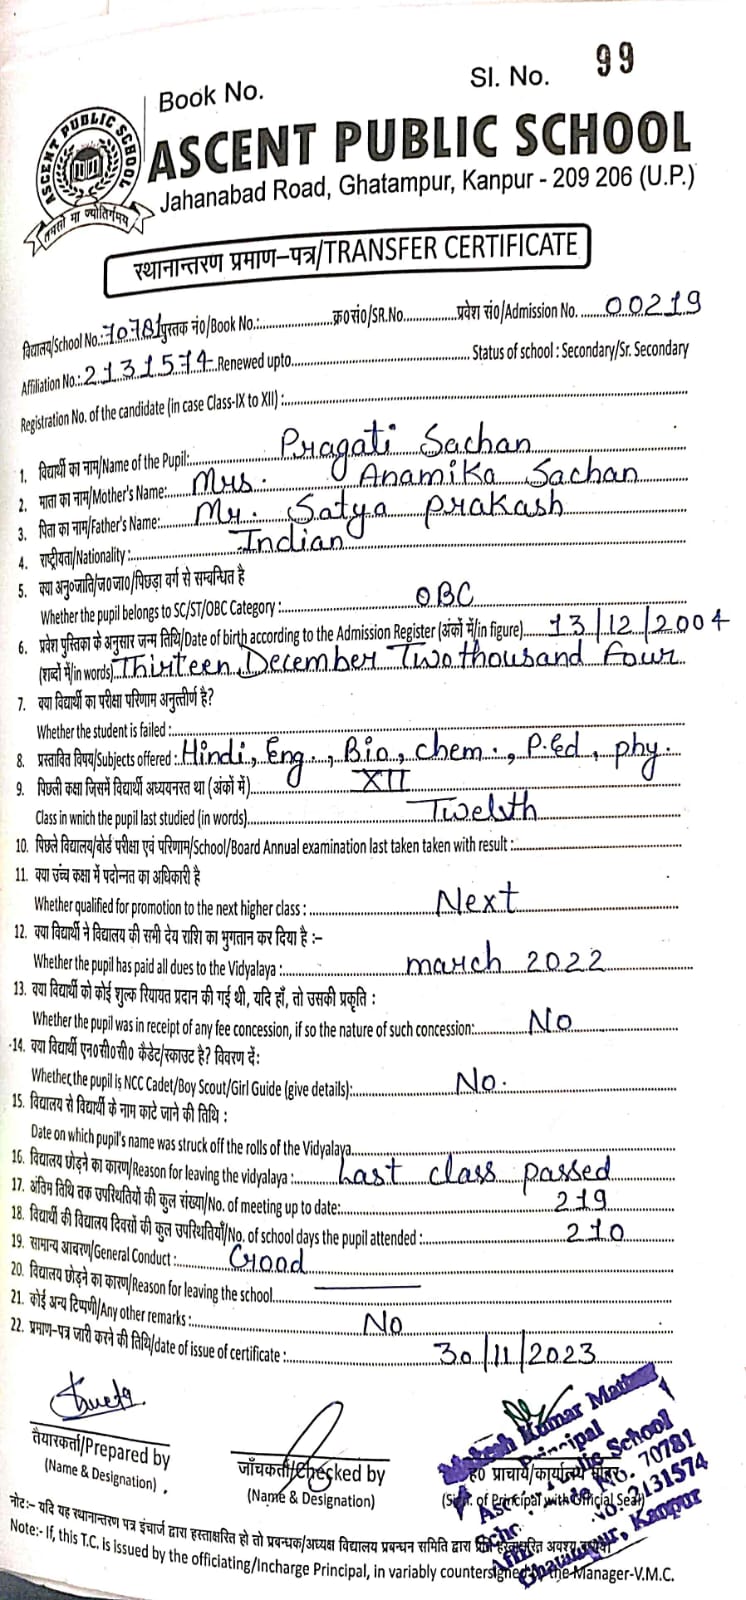 Book No.
Sl. No. 99
ASCENT PUBLIC SCHOOL
तमसो मा ज्योतिर्गमय
ASCENT PUBLIC SCHOOL
Jahanabad Road, Ghatampur, Kanpur - 209 206 (U.P.)
स्थानान्तरण प्रमाण–पत्र/TRANSFER CERTIFICATE
विद्यालय/School No.: 70781 पुस्तक नं०/Book No.: क्र०सं०/SR.No. प्रवेश सं०/Admission No. 00219
Affiliation No.: 2131574 Renewed upto Status of school : Secondary/Sr. Secondary
Registration No. of the candidate (in case Class-IX to XII) :
1. विद्यार्थी का नाम/Name of the Pupil: Pragati Sachan
2. माता का नाम/Mother's Name: Mrs. Anamika Sachan
3. पिता का नाम/Father's Name: Mr. Satya prakash
4. राष्ट्रीयता/Nationality : Indian
5. क्या अनु०जाति/ज०जा०/पिछड़ा वर्ग से सम्बन्धित है
Whether the pupil belongs to SC/ST/OBC Category : OBC
6. प्रवेश पुस्तिका के अनुसार जन्म तिथि/Date of birth according to the Admission Register (अंकों में/in figure) 13/12/2004
(शब्दों में/in words) Thirteen December Two thousand Four
7. क्या विद्यार्थी का परीक्षा परिणाम अनुत्तीर्ण है?
Whether the student is failed :
8. प्रस्तावित विषय/Subjects offered : Hindi, Eng., Bio, chem., P.Ed, phy.
9. पिछली कक्षा जिसमें विद्यार्थी अध्ययनरत था (अंकों में) XII
Class in wnich the pupil last studied (in words) Twelvth
10. पिछले विद्यालय/बोर्ड परीक्षा एवं परिणाम/School/Board Annual examination last taken taken with result :
11. क्या उच्च कक्षा में पदोन्नत का अधिकारी है
Whether qualified for promotion to the next higher class : Next
12. क्या विद्यार्थी ने विद्यालय की सभी देय राशि का भुगतान कर दिया है :–
Whether the pupil has paid all dues to the Vidyalaya : march 2022
13. क्या विद्यार्थी को कोई शुल्क रियायत प्रदान की गई थी, यदि हाँ, तो उसकी प्रकृति :
Whether the pupil was in receipt of any fee concession, if so the nature of such concession: No
14. क्या विद्यार्थी एन०सी०सी० कैडेट/स्काउट है? विवरण दें:
Whether, the pupil is NCC Cadet/Boy Scout/Girl Guide (give details): No.
15. विद्यालय से विद्यार्थी के नाम काटे जाने की तिथि :
Date on which pupil's name was struck off the rolls of the Vidyalaya
16. विद्यालय छोड़ने का कारण/Reason for leaving the vidyalaya : Last class passed
17. अंतिम तिथि तक उपस्थितियों की कुल संख्या/No. of meeting up to date: 219
18. विद्यार्थी की विद्यालय दिवसों की कुल उपस्थितियाँ/No. of school days the pupil attended : 210
19. सामान्य आचरण/General Conduct : Good
20. विद्यालय छोड़ने का कारण/Reason for leaving the school
21. कोई अन्य टिप्पणी/Any other remarks : No
22. प्रमाण-पत्र जारी करने की तिथि/date of issue of certificate : 30/11/2023
तैयारकर्ता/Prepared by
(Name & Designation)
जाँचकर्ता/Checked by
(Name & Designation)
ह० प्राचार्य/कार्यालय मोहर
(Sign. of Principal with Official Seal)
Kumar
Principal
Public School
No. 70781
No. 2131574
Ghatampur, Kanpur
नोट:– यदि यह स्थानान्तरण पत्र इंचार्ज द्वारा हस्ताक्षरित हो तो प्रबन्धक/अध्यक्ष विद्यालय प्रबन्धन समिति द्वारा
Note:- If, this T.C. is issued by the officiating/Incharge Principal, in variably countersigned the Manager-V.M.C.